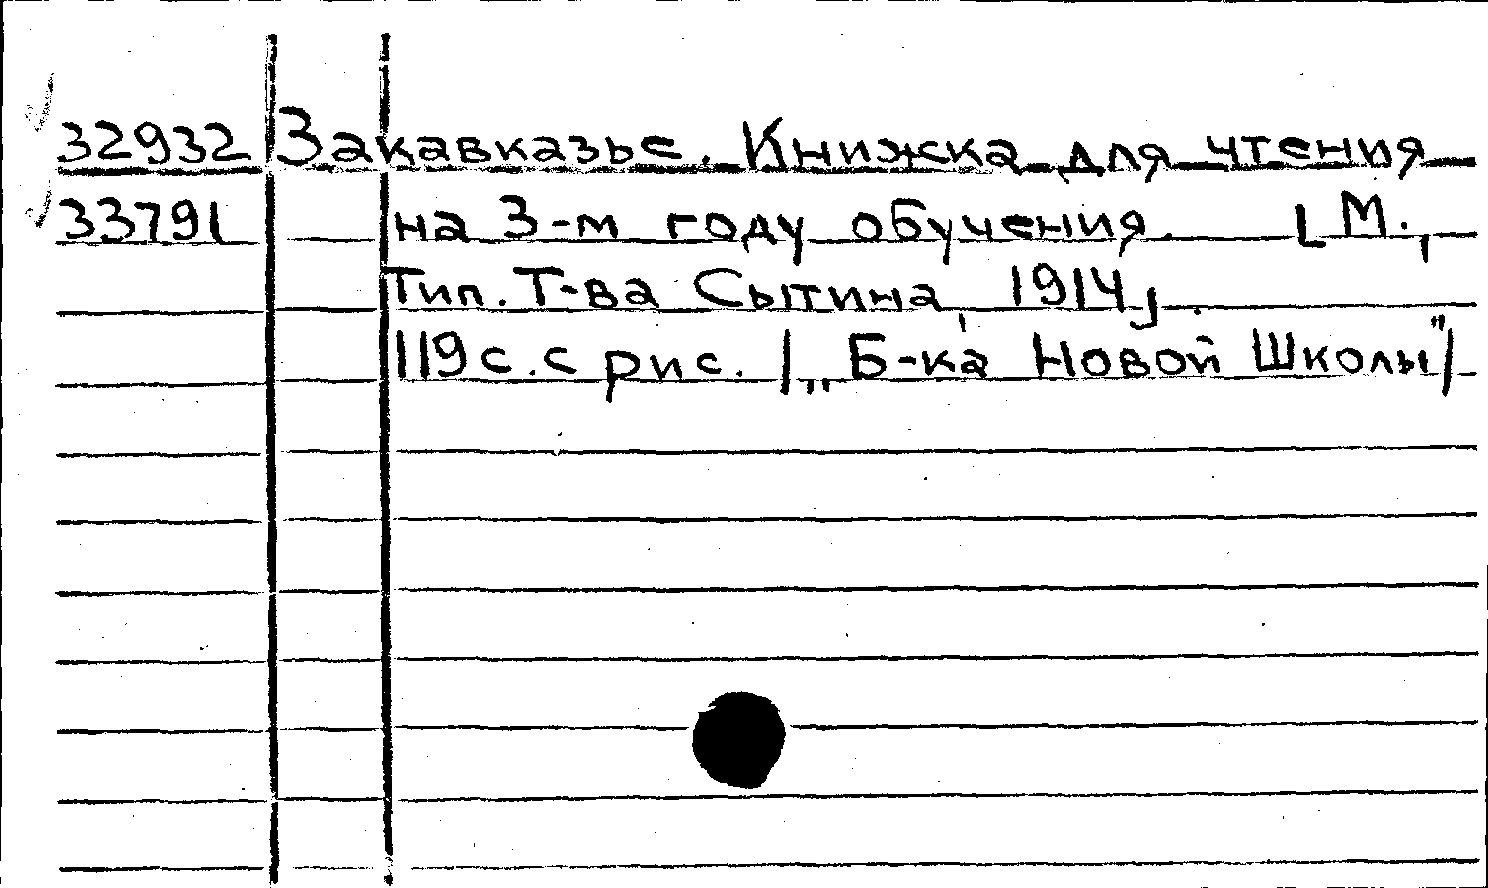 32932 Закавказье. Книжка для чтения
33791 на 3-м году обучения. [М.,
Тип. Т-ва Сытина, 1914].
119 с. с рис. /„Б-ка Новой Школы"/